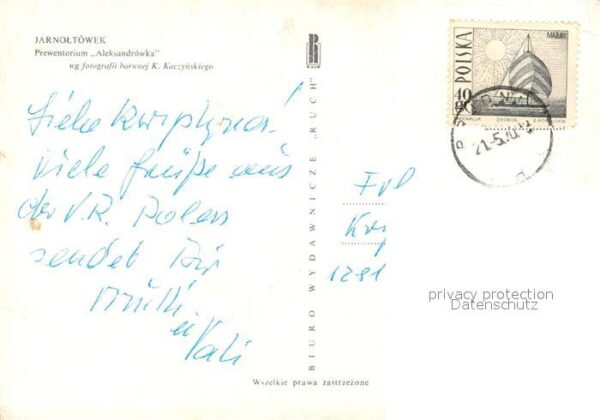 JARNOŁTÓWEK
Prewentorium „Aleksandrówka"
wg fotografii barwnej K. Kaczyńskiego
RUCH
MAZURY
POLSKA
40 GR
21-5.70
Liebe
viele Grüße aus
der V.R. Polen
sendet Dir
Mutti
u. Vati
Frl
1281
BIURO WYDAWNICZE „RUCH"
privacy protection
Datenschutz
Wszelkie prawa zastrzeżone